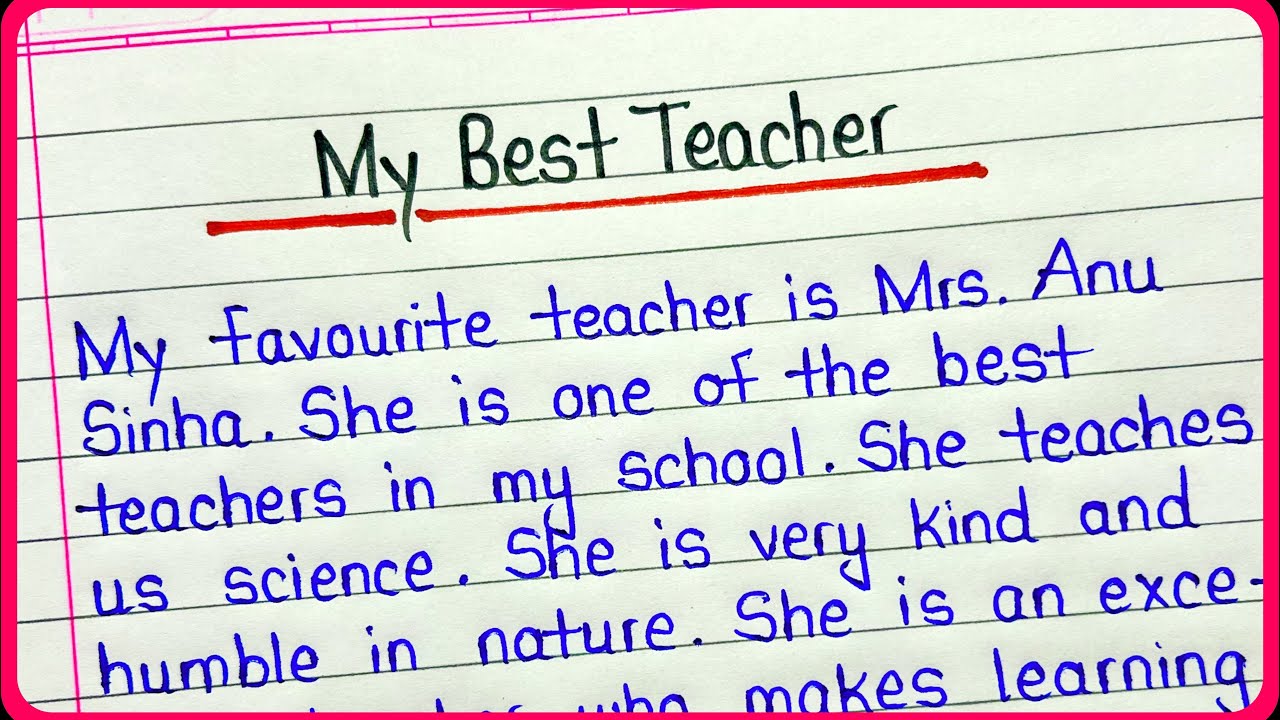 My Best Teacher
My favourite teacher is Mrs. Anu
Sinha. She is one of the best
teachers in my school. She teaches
us science. She is very kind and
humble in nature. She is an exce-
who makes learning